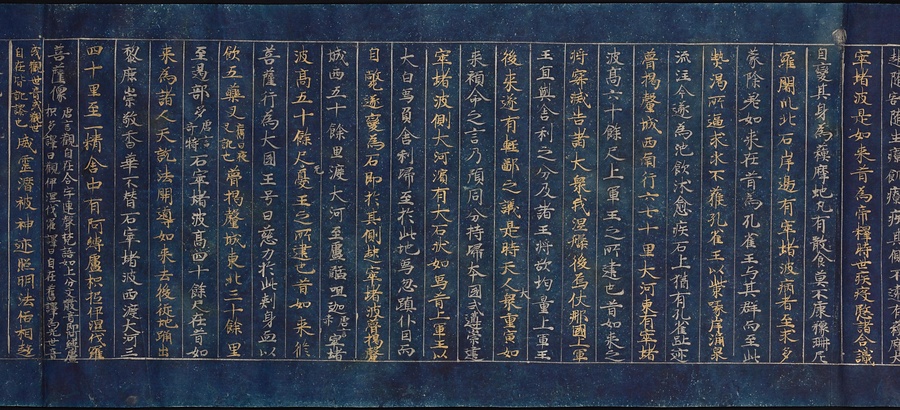 窣堵波是如來昔為帝釋時世疾疫愍諸含識
自變其身為蘓摩虵凡有散食莫不康豫珊尼
羅闍川北石岸邊有窣堵波病者至求多
蒙除差如來在昔為孔雀王與其群而至此
熱渴所逼求水不獲孔雀王以紫啄崖涌泉
流注今遂為池飲沐愈疾石上猶有孔雀趾迹
瞢揭釐城西南行六七十里大河東有窣堵
波高六十餘尺上軍王之所建也昔如來之
將寂滅告諸大衆我涅槃後烏仗那國上軍
王宜與舍利之分及諸王將欲均量上軍王
後來遂有輕鄙之議是時天人大衆重宣如
來顧命之言乃預同分持歸本國式遵崇建
窣堵波側大河濱有大石狀如象昔上軍王以
大白象負舍利歸至於此地象忽蹎仆因而
自斃遂變為石即於其側起窣堵波瞢揭釐
城西五十餘里渡大河至盧醯呾迦唐言赤窣堵
波高五十餘尺无憂王之所建也昔如來修
菩薩行為大國王号曰慈力於此刺身血以
飲五藥叉舊曰夜叉訛也瞢揭釐城東北三十餘里
至遏部多唐言奇特石窣堵波高四十餘尺在昔如
來為諸人天說法開導如來去後從地踊出
黎庶崇敬香華不替石窣堵波西渡大河三
四十里至一精舍中有阿縛盧枳伭伊濕伐羅
菩薩像唐言觀自在合字連聲梵語如上分文散音即阿縛盧枳多譯曰觀伊濕伐羅譯曰自在舊譯為光世音
或觀世音或觀世自在皆訛謬也威靈潛被神迹照明法俗相趍